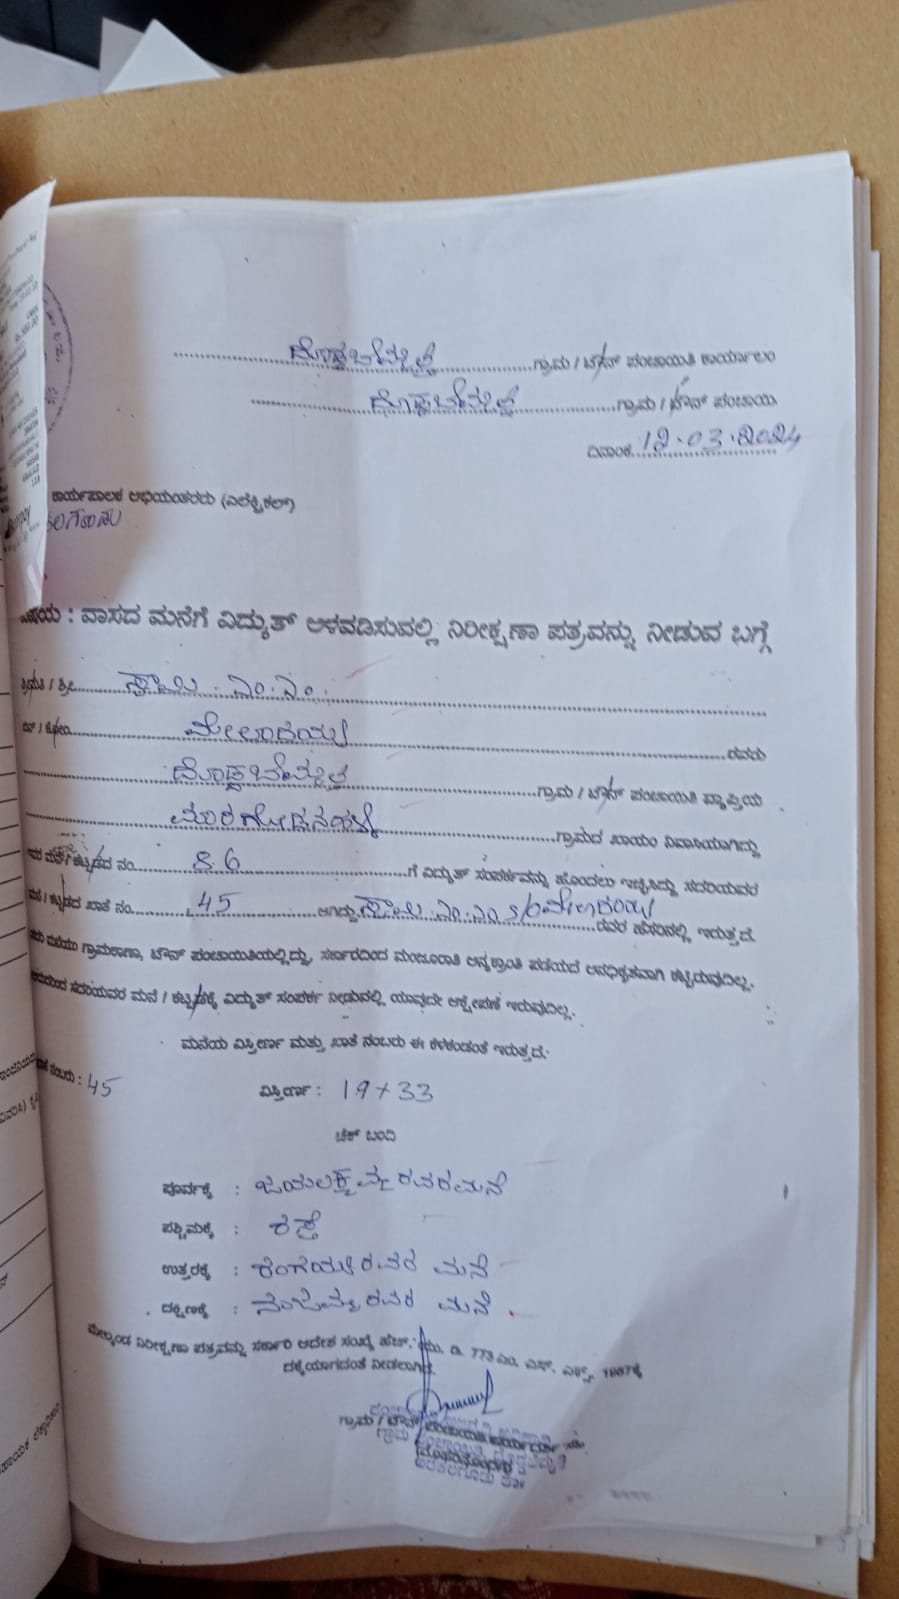 ದೊಡ್ಡಬೆಮ್ಮತ್ತಿ ಗ್ರಾಮ / ಟೌನ್ ಪಂಚಾಯಿತಿ ಕಾರ್ಯಾಲಯ
ದೊಡ್ಡಬೆಮ್ಮತ್ತಿ ಗ್ರಾಮ / ಟೌನ್ ಪಂಚಾಯಿ
ದಿನಾಂಕ 12.03.2024
ಕಾರ್ಯಪಾಲಕ ಅಭಿಯಂತರರು (ಎಲೆಕ್ಟ್ರಿಕಲ್)
ವಿಷಯ : ವಾಸದ ಮನೆಗೆ ವಿದ್ಯುತ್ ಅಳವಡಿಸುವಲ್ಲಿ ನಿರೀಕ್ಷಣಾ ಪತ್ರವನ್ನು ನೀಡುವ ಬಗ್ಗೆ
ಶ್ರೀಮತಿ / ಶ್ರೀ ಎಂ.ಎಂ.
ರವರು
ದೊಡ್ಡಬೆಮ್ಮತ್ತಿ ಗ್ರಾಮ / ಟೌನ್ ಪಂಚಾಯಿತಿ ವ್ಯಾಪ್ತಿಯ
ಗ್ರಾಮದ ಖಾಯಂ ನಿವಾಸಿಯಾಗಿದ್ದು
ಇವರ ಮನೆ / ಕಟ್ಟಡದ ನಂ. 86 ಗೆ ವಿದ್ಯುತ್ ಸಂಪರ್ಕವನ್ನು ಹೊಂದಲು ಇಚ್ಛಿಸಿದ್ದು ಸದರಿಯವರ
ಮನೆ / ಕಟ್ಟಡದ ಖಾತೆ ನಂ. 45 ಆಗಿದ್ದು ಎಂ.ಎಂ S/o ರವರ ಹೆಸರಿನಲ್ಲಿ ಇರುತ್ತದೆ.
ಸದರಿ ಮನೆಯು ಗ್ರಾಮಠಾಣಾ, ಟೌನ್ ಪಂಚಾಯಿತಿಯಲ್ಲಿದ್ದು, ಸರ್ಕಾರದಿಂದ ಮಂಜೂರಾತಿ ಅನ್ಯಕ್ರಾಂತಿ ಪಡೆಯದೆ ಅನಧಿಕೃತವಾಗಿ ಕಟ್ಟಿರುವುದಿಲ್ಲ.
ಆದುದರಿಂದ ಸದರಿಯವರ ಮನೆ / ಕಟ್ಟಡಕ್ಕೆ ವಿದ್ಯುತ್ ಸಂಪರ್ಕ ನೀಡುವಲ್ಲಿ ಯಾವುದೇ ಆಕ್ಷೇಪಣೆ ಇರುವುದಿಲ್ಲ.
ಮನೆಯ ವಿಸ್ತೀರ್ಣ ಮತ್ತು ಖಾತೆ ನಂಬರು ಈ ಕೆಳಕಂಡಂತೆ ಇರುತ್ತದೆ.
ಖಾತೆ ನಂಬರು : 45 ವಿಸ್ತೀರ್ಣ : 19+33
ಚೆಕ್ ಬಂದಿ
ಪೂರ್ವಕ್ಕೆ : ಜಯಲಕ್ಷ್ಮಮ್ಮ ರವರ ಮನೆ
ಪಶ್ಚಿಮಕ್ಕೆ : ರಸ್ತೆ
ಉತ್ತರಕ್ಕೆ : ರಂಗಯ್ಯ ರವರ ಮನೆ
ದಕ್ಷಿಣಕ್ಕೆ : ನಂಜಮ್ಮ ರವರ ಮನೆ
ಮೇಲ್ಕಂಡ ನಿರೀಕ್ಷಣಾ ಪತ್ರವನ್ನು ಸರ್ಕಾರಿ ಆದೇಶ ಸಂಖ್ಯೆ ಹೆಚ್. ಯು. ಡಿ. 773 ಎಂ. ಎನ್. ಎಕ್ಸ್. 1987ಕ್ಕೆ
ದಕ್ಕೆಯಾಗದಂತೆ ನೀಡಲಾಗಿದೆ.
ಗ್ರಾಮ / ಟೌನ್ ಪಂಚಾಯಿತಿ ಕಾರ್ಯದರ್ಶಿ